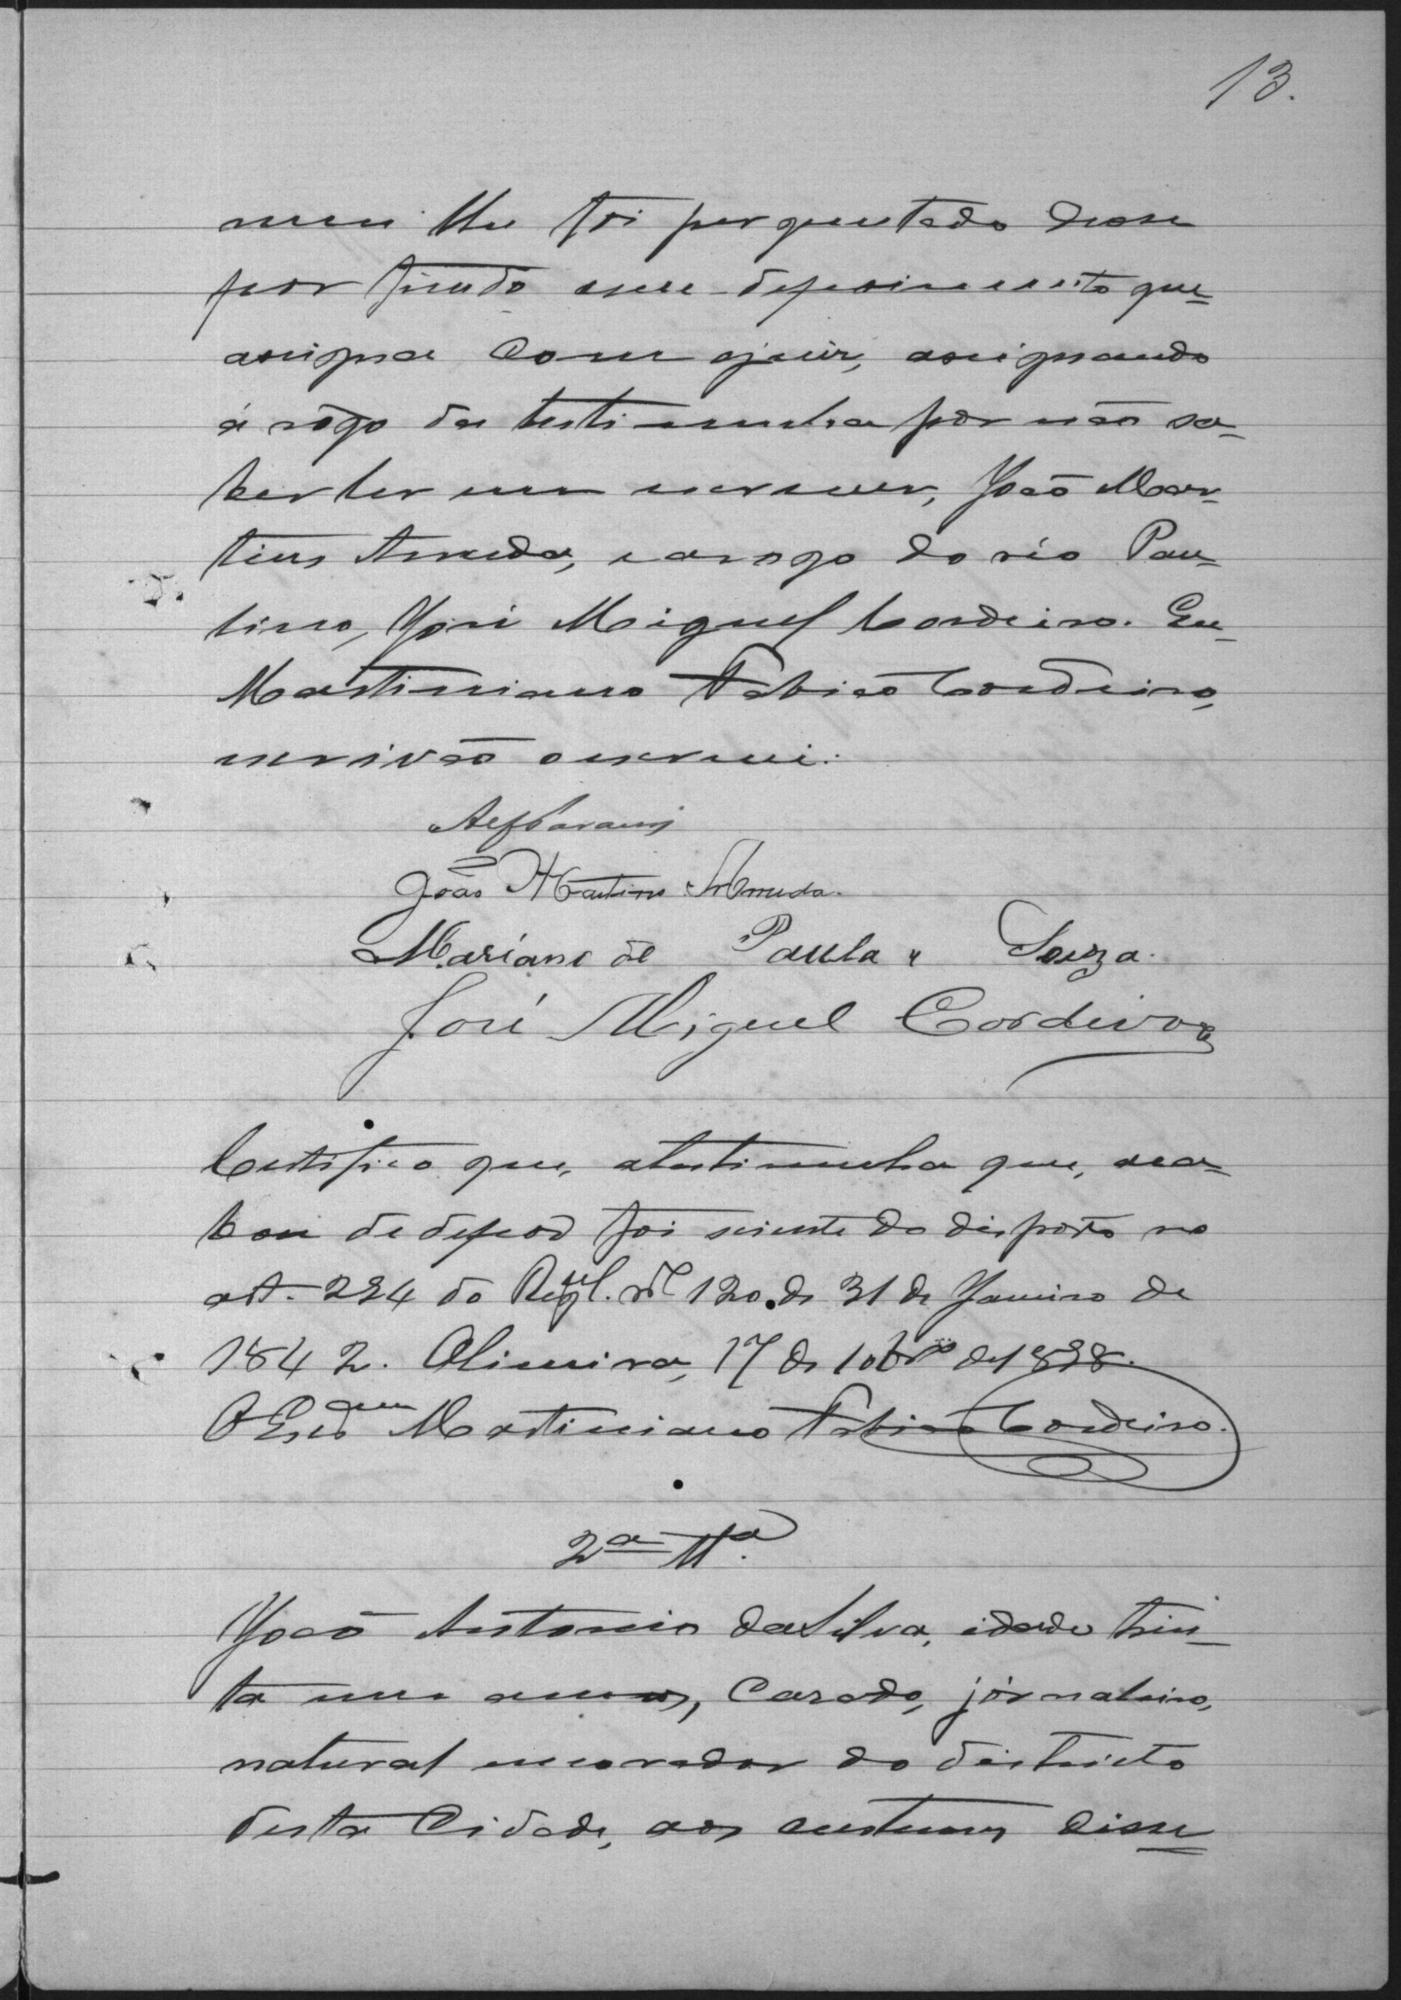 13.
nem lhe foi perguntado deose
por findo esse depoimento que
assigna com o juiz, assignando
á rogo da testimunha por não sa-
ber ler nem escrever, João Mar-
tins Arruda, e a rogo do réo Pau-
lino, José Miguel Cordeiro. Eu
Martiniano Fabião Cordeiro,
escrivão o escrevi.
João Martins Arruda.
Mariano de Paula e Souza.
José Miguel Cordeiro
Certifico que, a testimunha que, aca-
bou de depor foi sciente do disposto no
art. 294 do Regul. nº 120 de 31 de Janeiro de
1842. Limeira, 17 de 10brº de 1898.
O Escrm Martiniano Fabião Cordeiro.
2ª Ttª.
João Antonio da Silva, idade trin-
ta um annos, casado, jornaleiro,
natural e morador do districto
desta Cidade, aos custumes disse